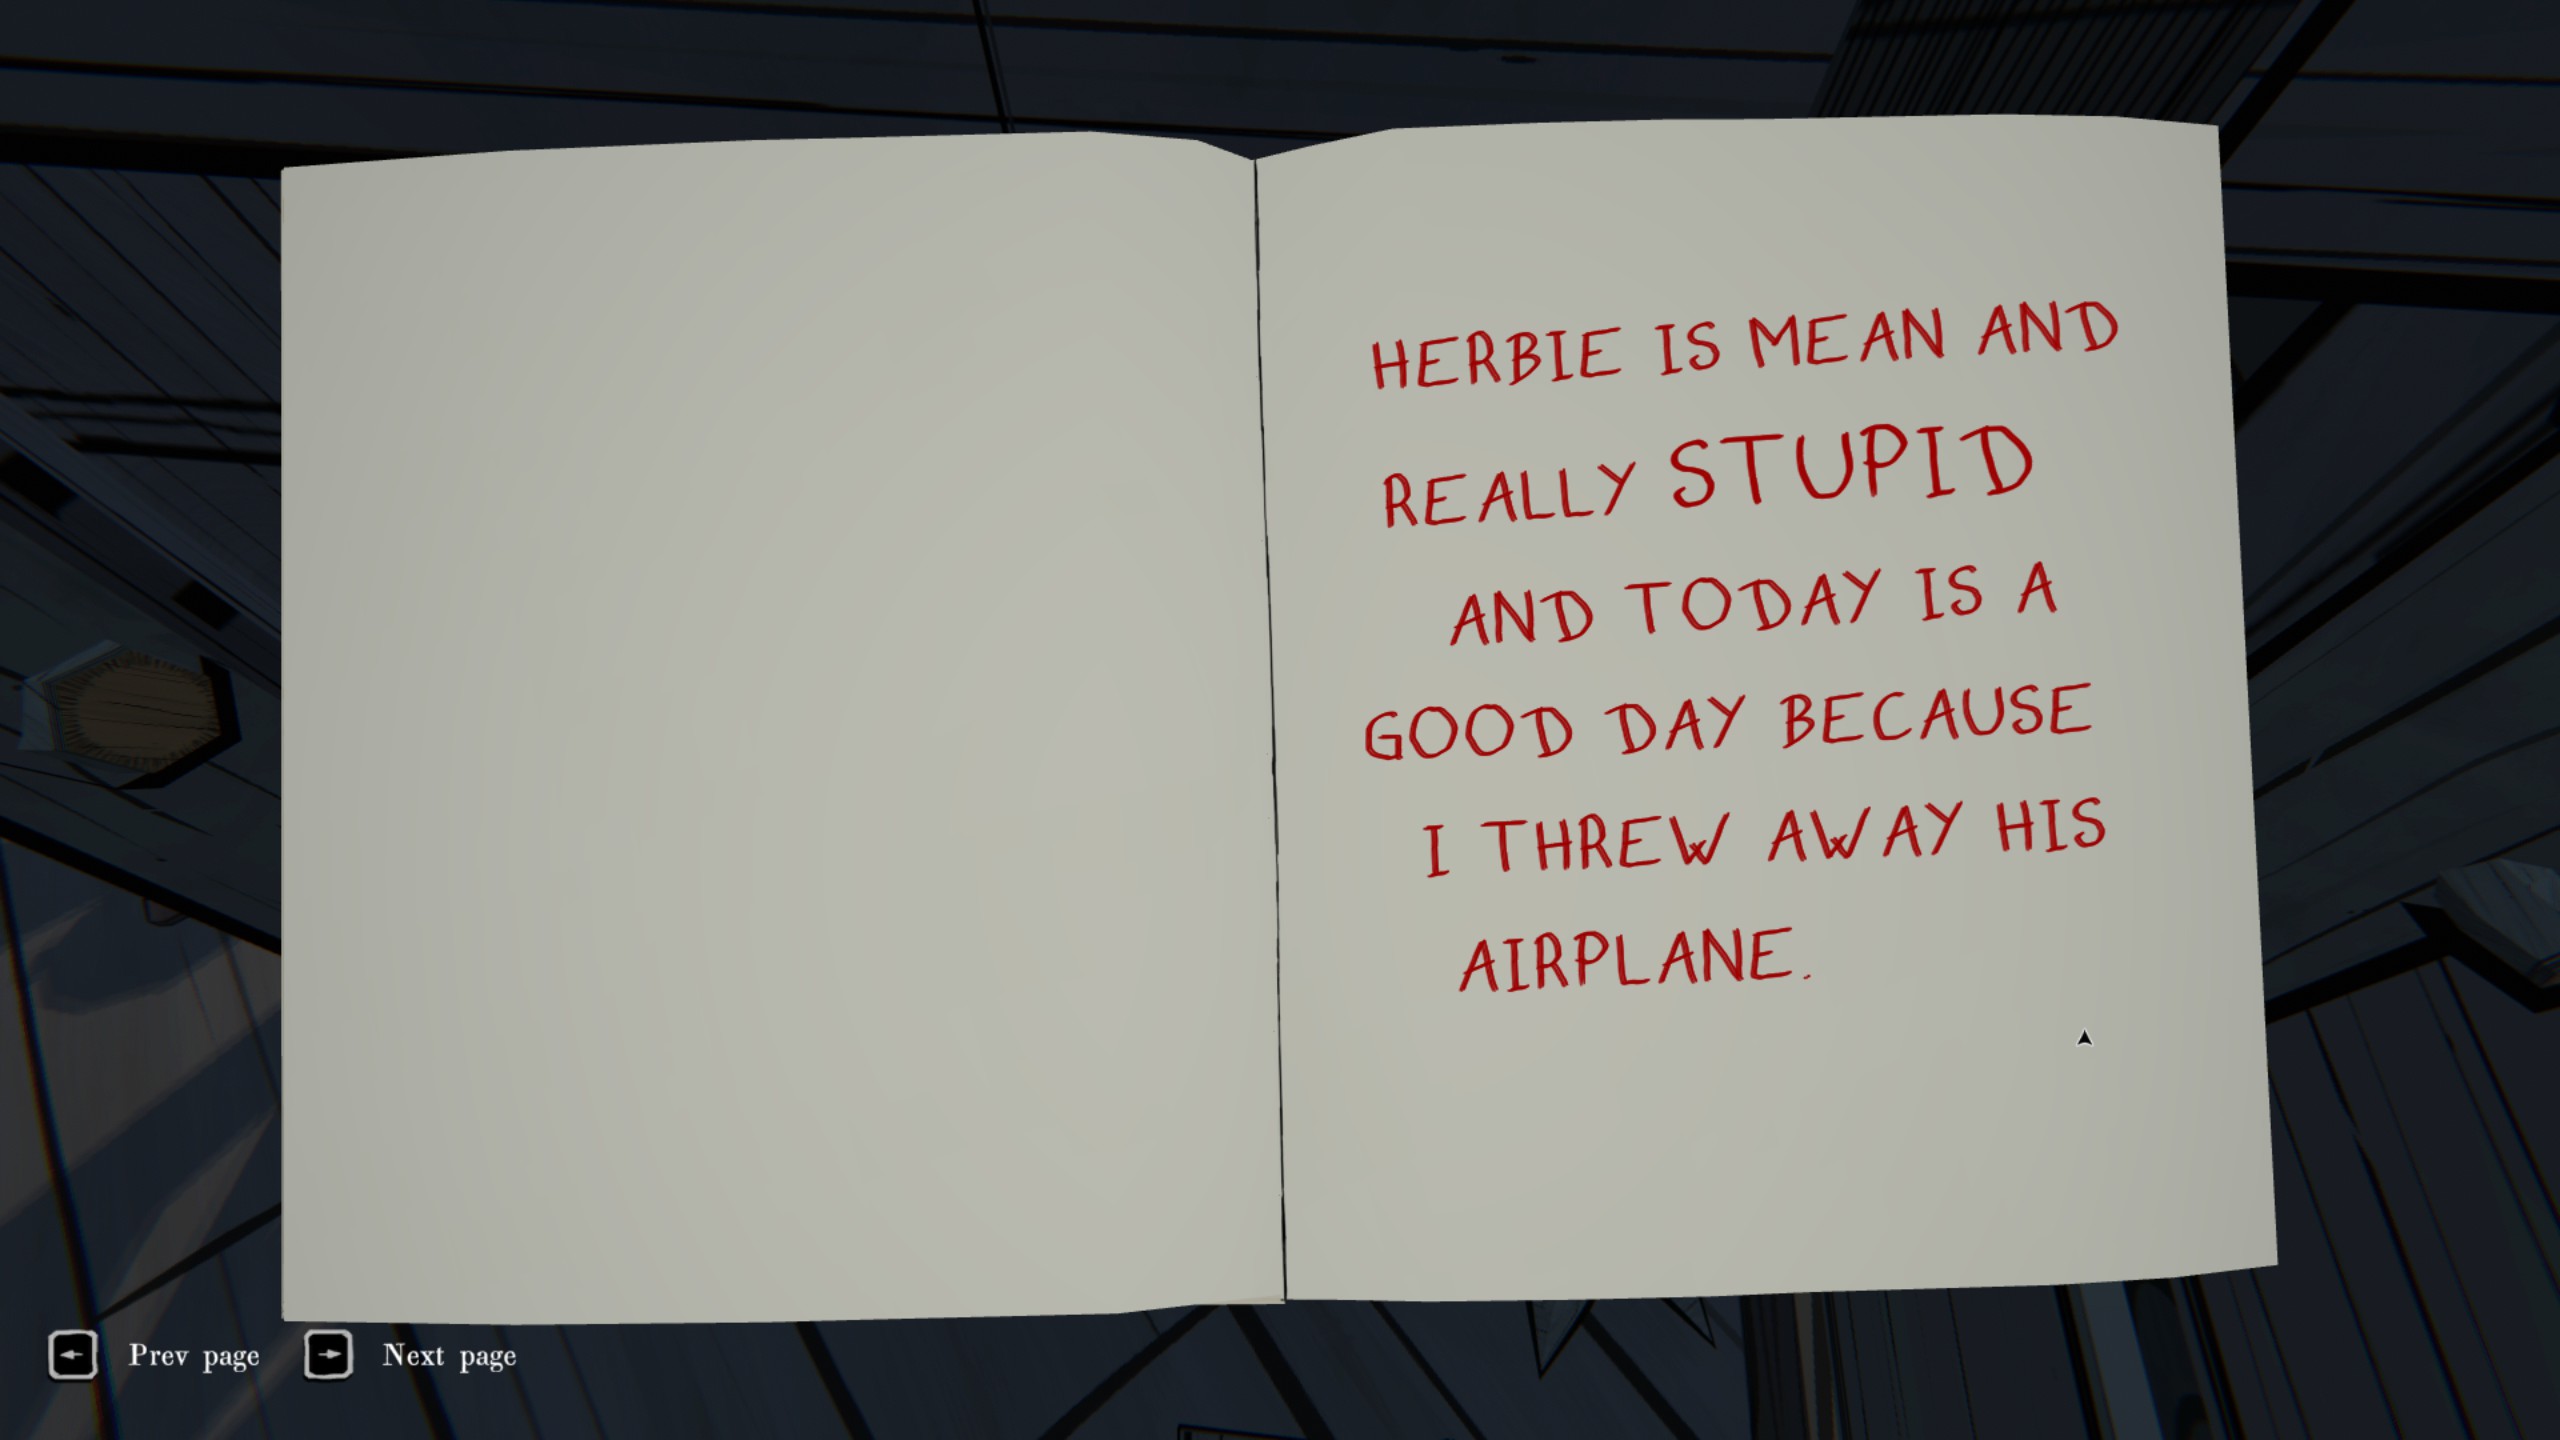 HERBIE IS MEAN AND
REALLY STUPID
AND TODAY IS A
GOOD DAY BECAUSE
I THREW AWAY HIS
AIRPLANE.
Prev page
Next page